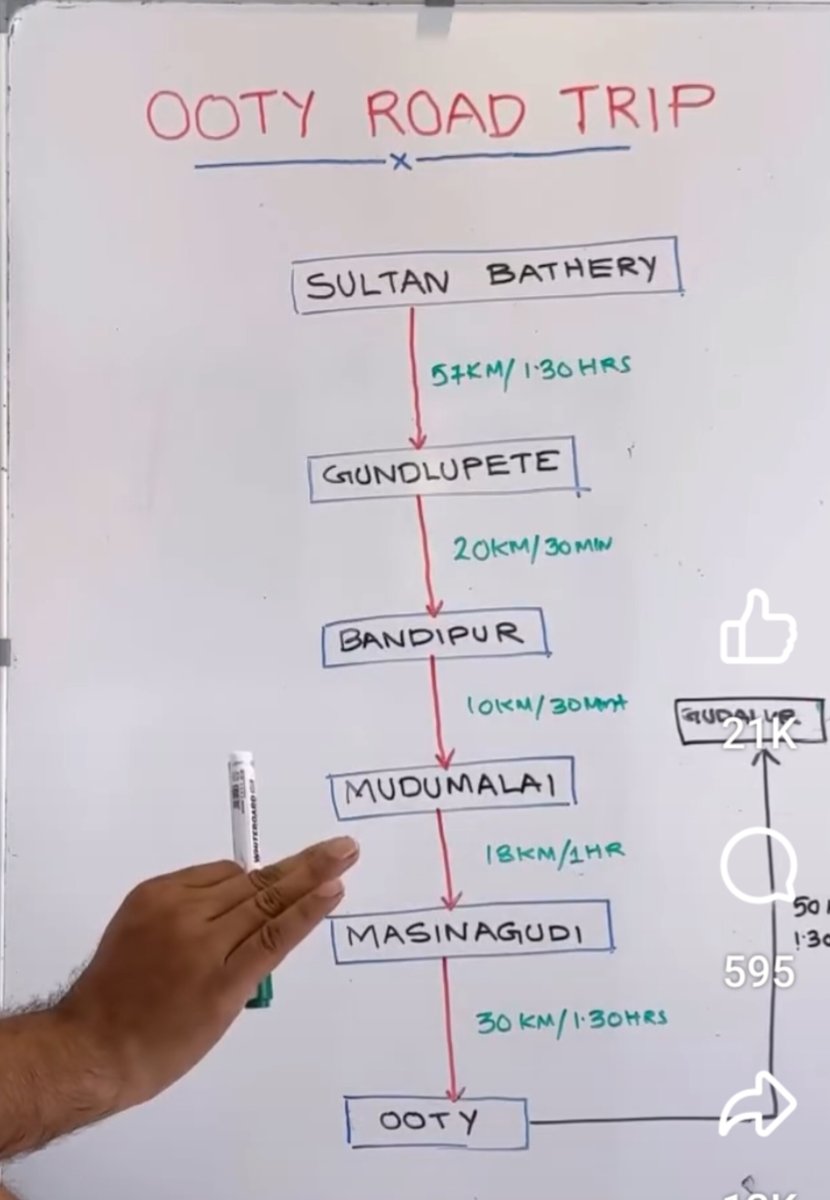 OOTY ROAD TRIP
x
SULTAN BATHERY
57KM/1.30HRS
GUNDLUPETE
20KM/30MIN
BANDIPUR
10KM/30MINT
MUDUMALAI
18KM/1HR
MASINAGUDI
30KM/1.30HRS
OOTY
GUDALUR
50
1.30
WHITEBOARD
21K
595